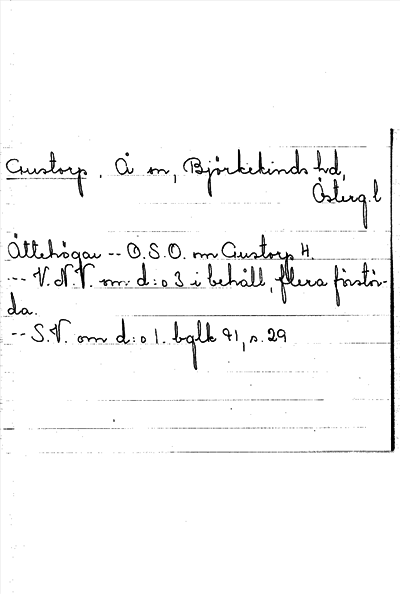 Gustorp. Å sn, Björkekinds hd,
Österg.l
Ättehögar -- O.S.O. om Gustorp 4.
--- V.N.V. om d:o 3 i behåll, flera förstör-
da.
-- S.V. om d:o 1. bglk 91, s. 29